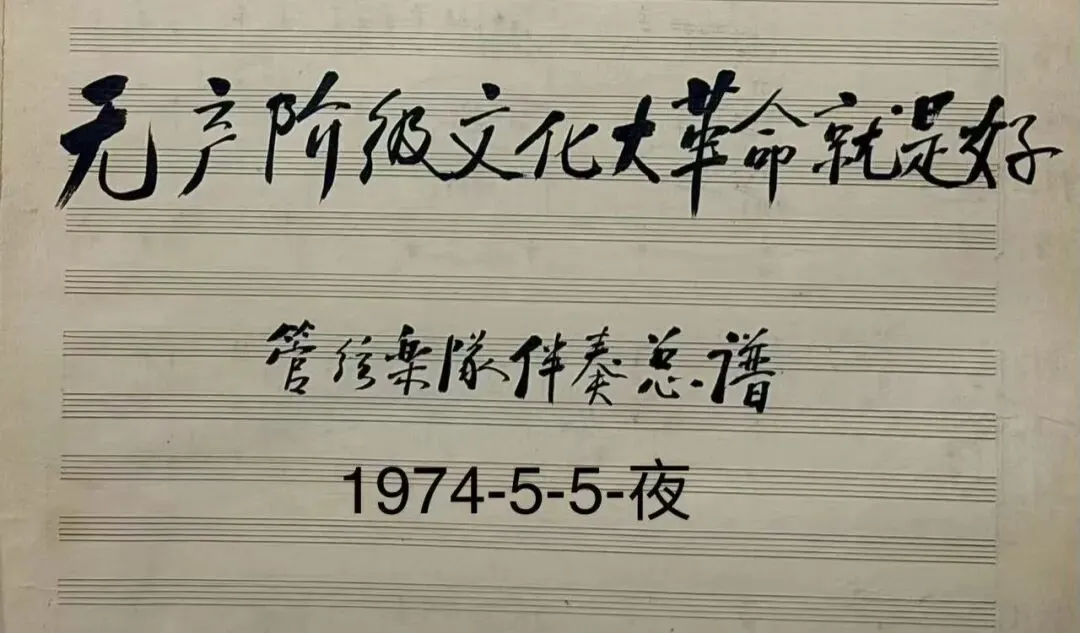 无产阶级文化大革命就是好
管弦楽隊伴奏总谱
1974-5-5-夜